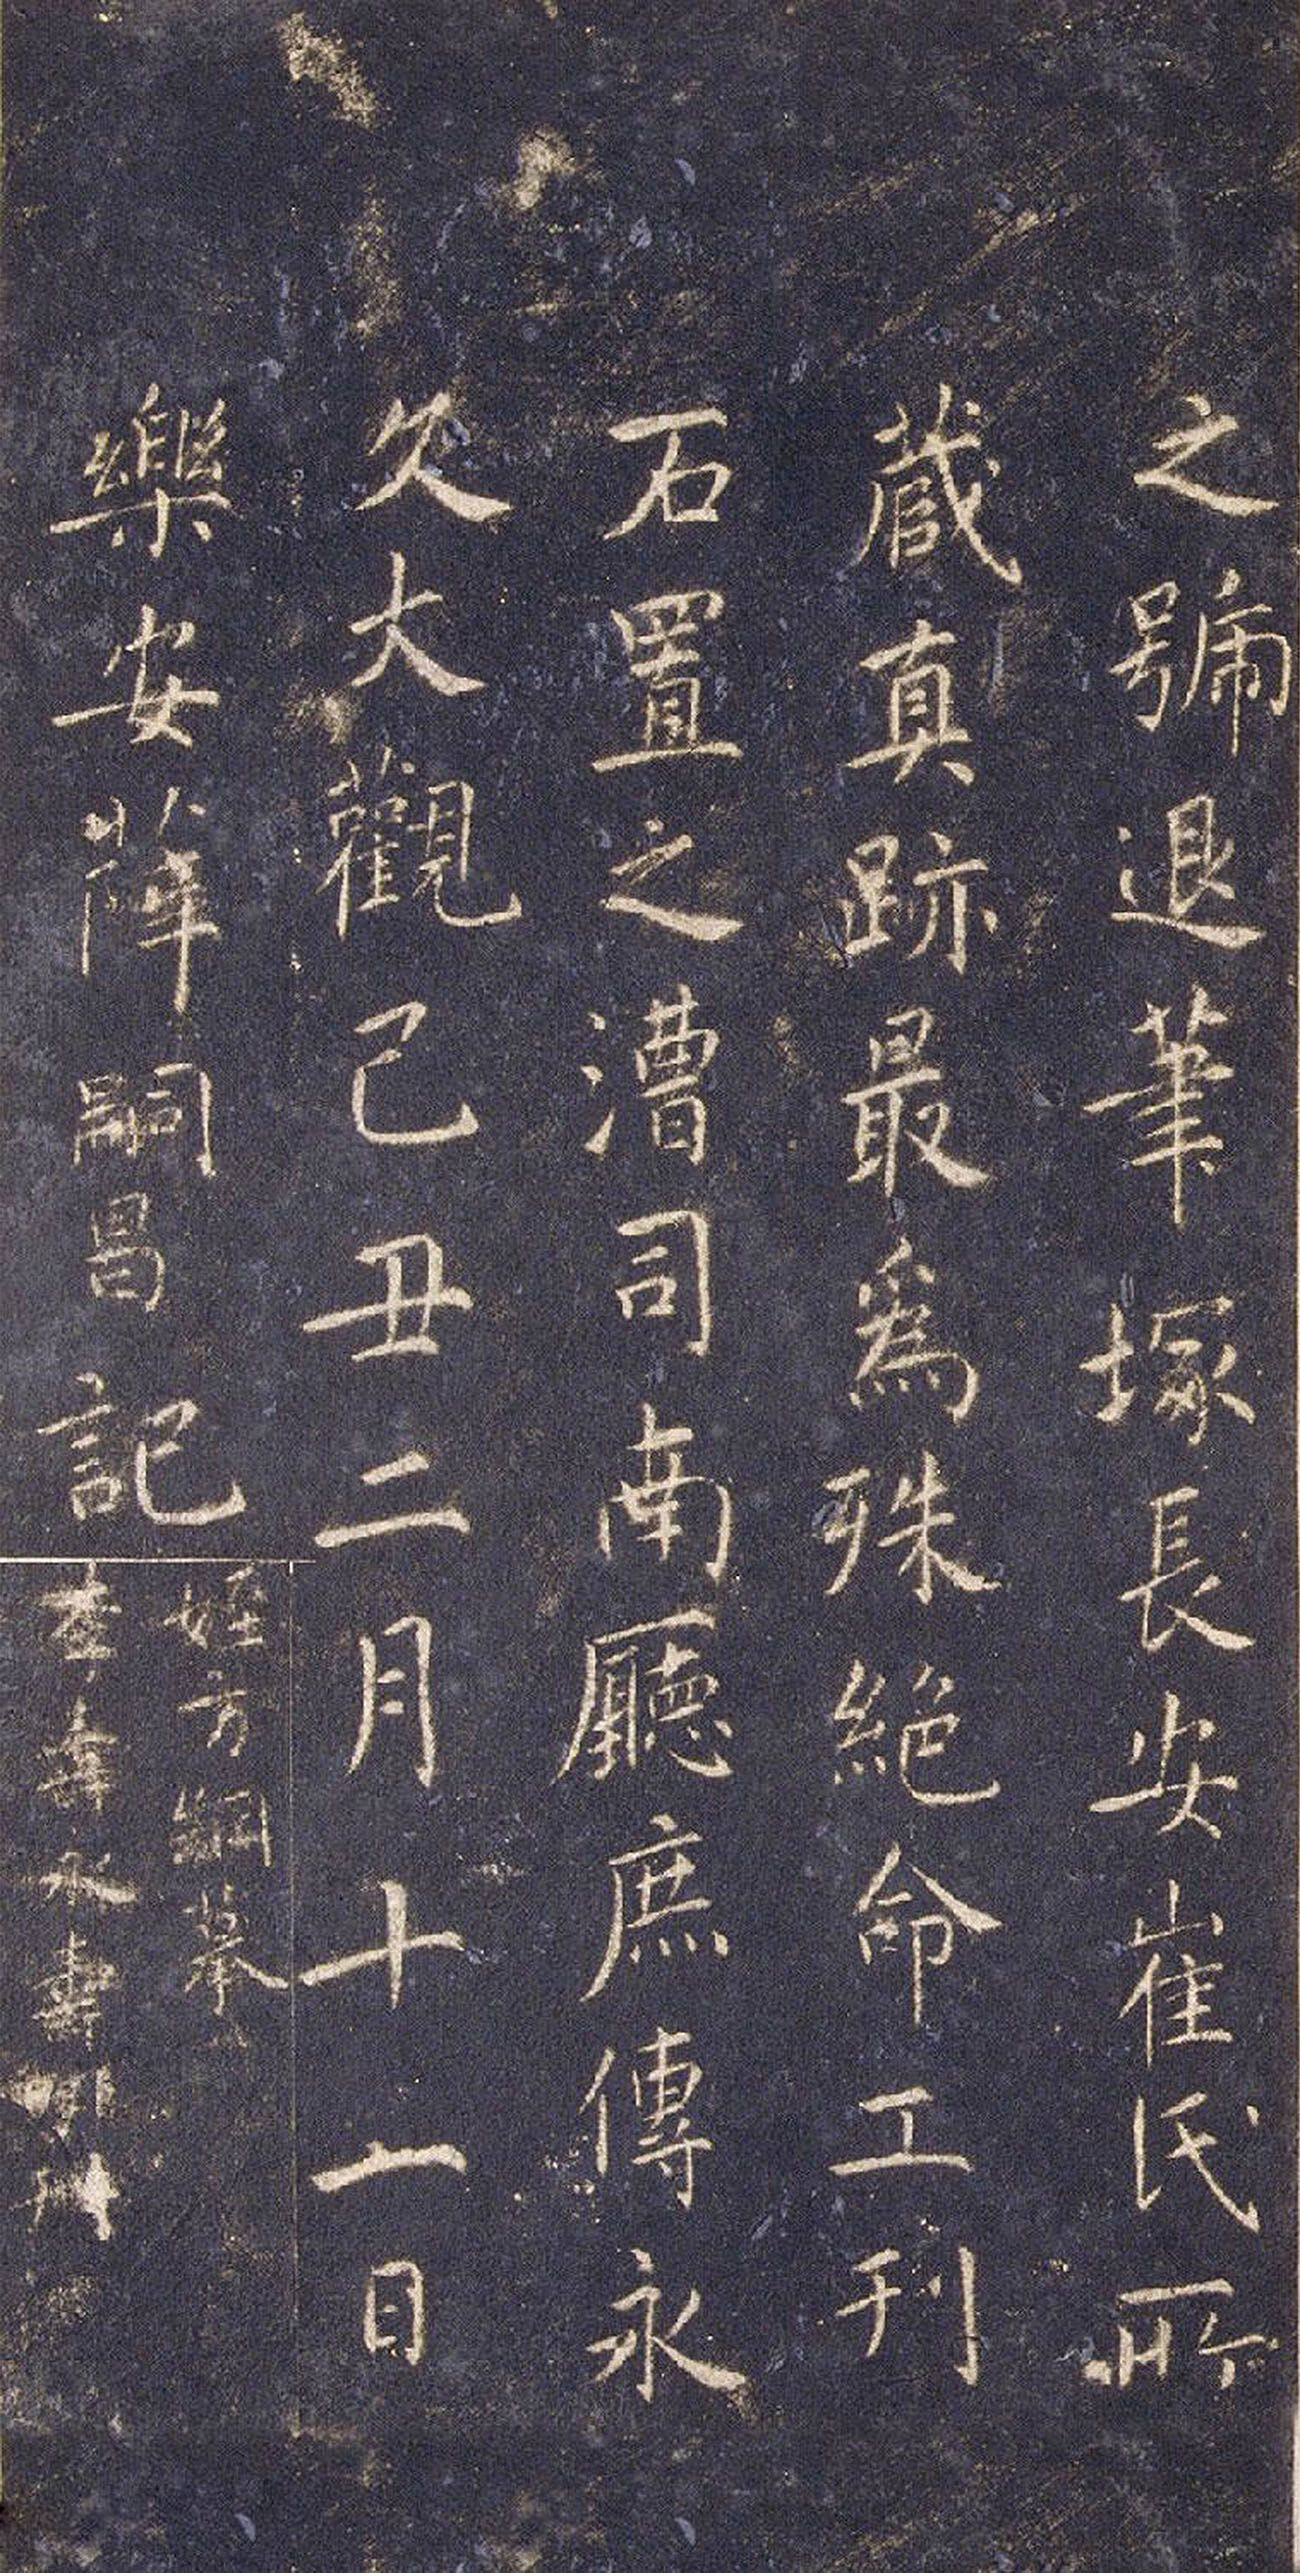 之號退筆塚長安崔氏所
藏真跡最爲殊絕命工刊
石置之漕司南廳庶傳永
久大觀己丑二月十一日
樂安薛嗣昌記
姪方綱摹
李壽永壽明刊